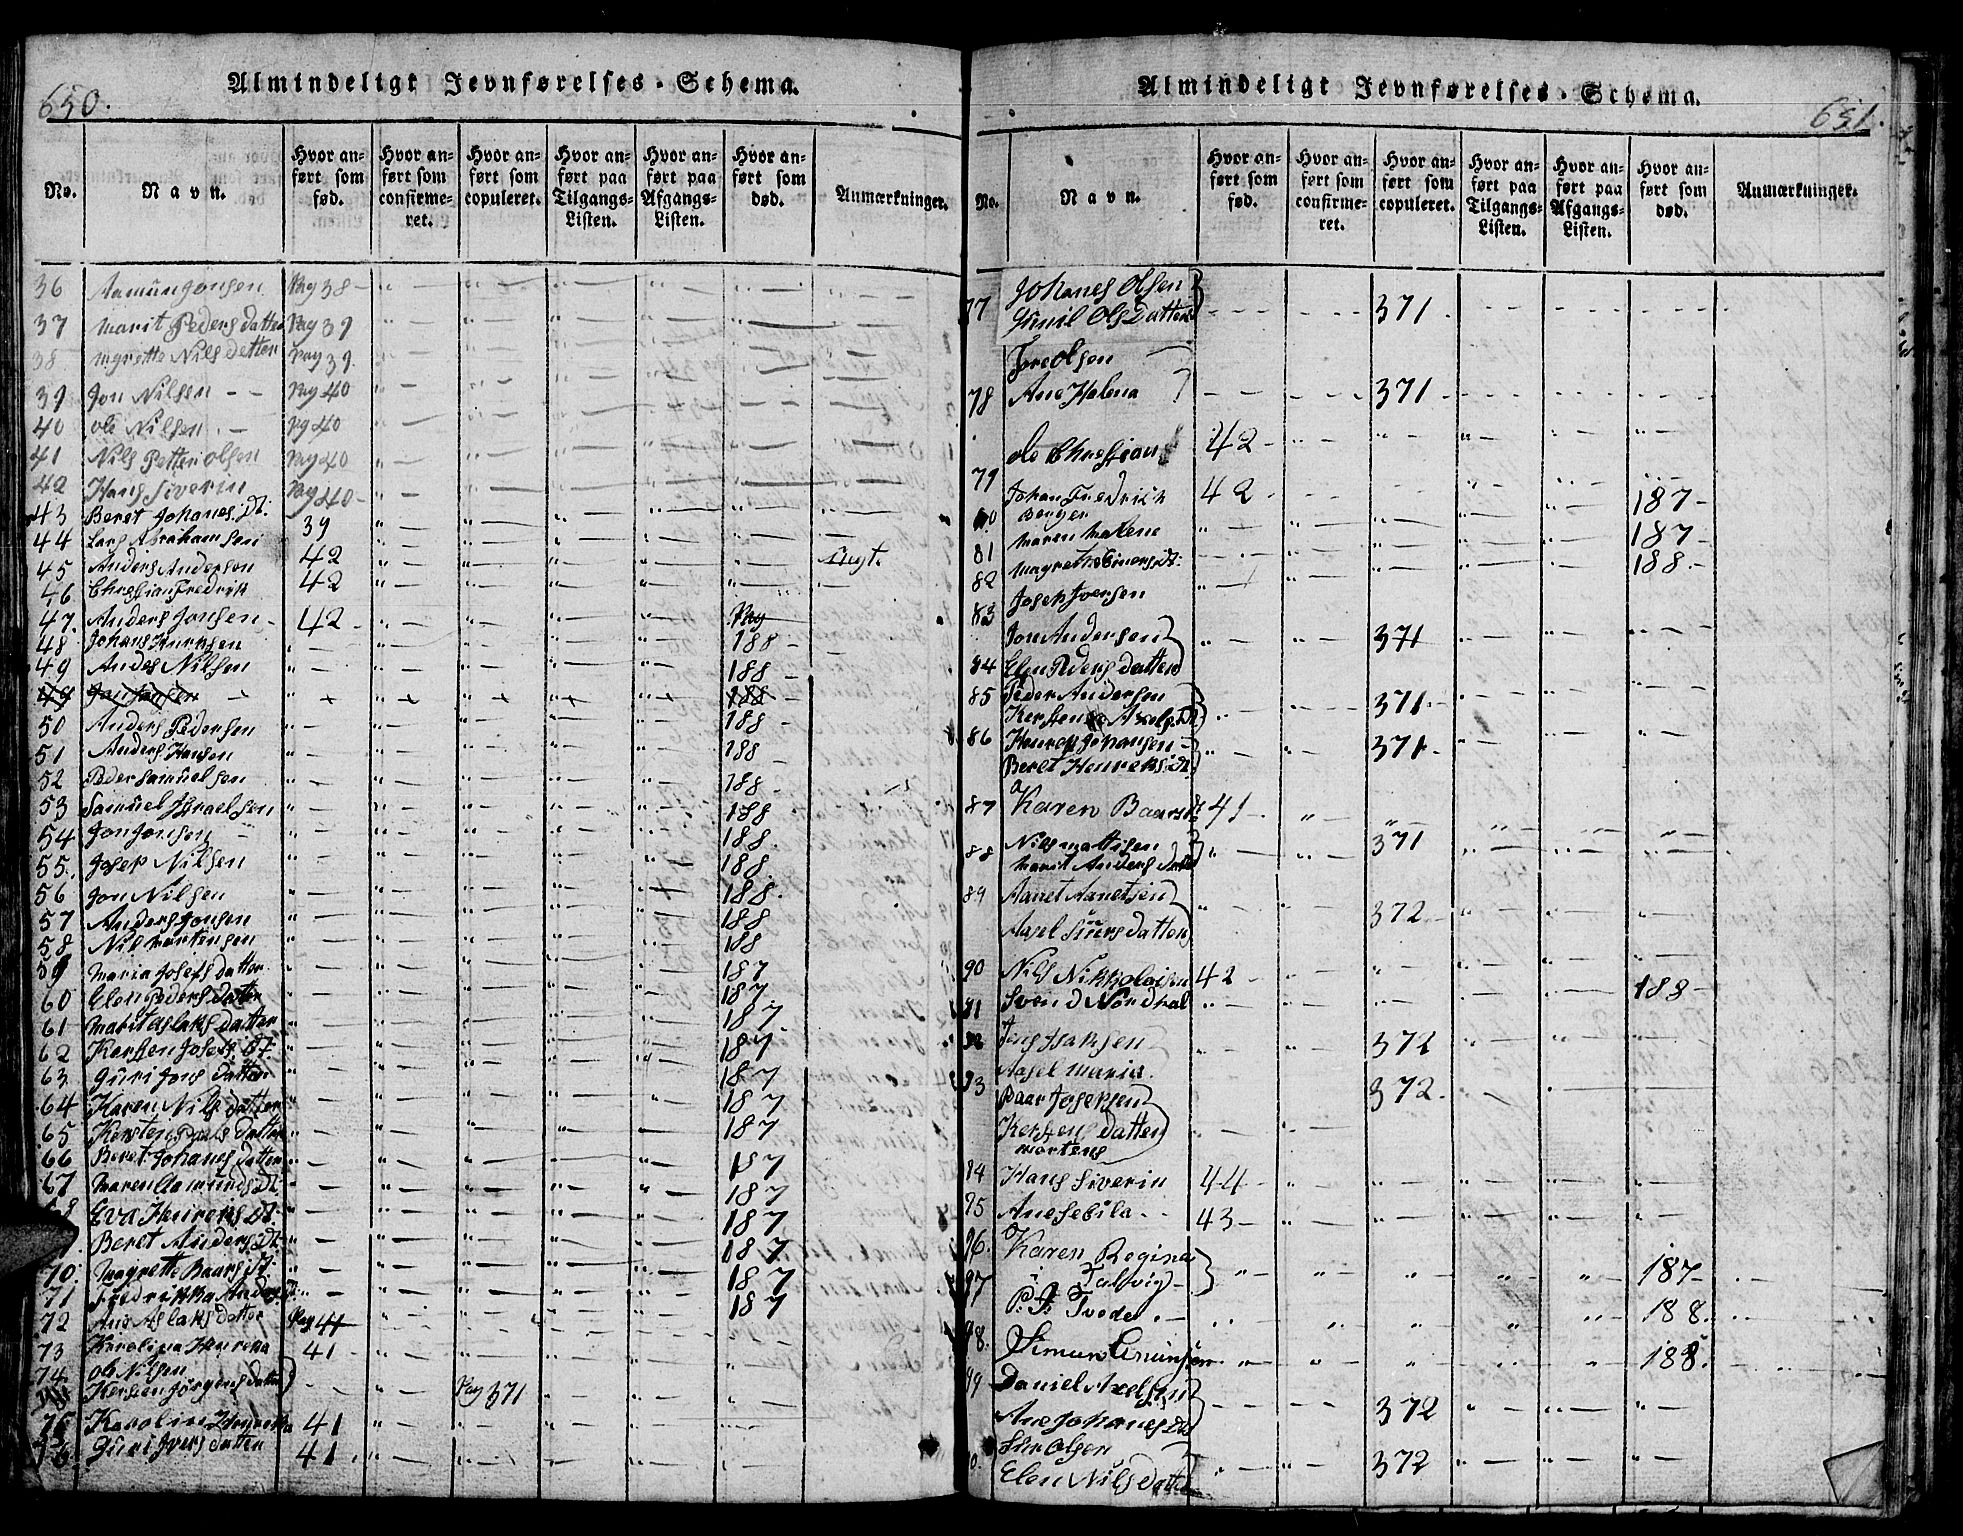 650.
Almindeligt Jevnførelses-Schema.
No. Navn. Hvor anført som fød. Hvor anført som confirmeret. Hvor anført som copuleret. Hvor anført paa Tilgangs-Listen. Hvor anført paa Afgangs-Listen. Hvor anført som død. Anmærkninger.
36 Aamun Jonsen Pag 38
37 Marit Peders datter Pag 39
38 Mgrette Nils datter Pag 39.
39 Jon Nilsen Pag 40
40 ole Nilsen Pag 40
41 Nils Petter Olsen Pag 40
42 Hans Siverin Pag 40
43 Beret Johanes Dt:
44 Lars Abrahamsen 39
45 Anders Andersen 42
46 Christian Fredrik 42
47. Anders Jonsen 42 Pag
48 Johans 188
49 Andes Nilsen 188
49 Jon Jonsen 188
50 Anders Pedersen 188
51 Anders Hansen 188
52 Peder Samuelsen 188
53 Samuel Israelsen 188
54 Jon Jonsen 188.
55. Josep Nilsen 188.
56 Jon Nilsen 188.
57 Anders Jonsen 188
58 Nils Mortensen 188
59 Maria Josefs datter 187
60 Elen Peders datter 187
61 Marit Aslaks datter 187.
62 Kersten Josefs Dt. 187
63 Guri Jons datter 187
64 Karen Nils datter 187
65 Kersten Pouls datter 187
66 Beret Johanes datter 187
67 Maren Aamunds Dt 187
68 Eva Henreks Dt. 187
Beret Anders Dt 187
70. Magrette Baars Dt. 187
71 Fredrikka Anders Dt 187
72 Ane Aslaks datter Pag 41
73 Karolina Henreka 41
74. ole Nilsen
Kersten Jørgens datter Pag 371
75 Karolin 41
76 Guri Ivers datter 41
651.
Almindeligt Jevnførelses-Schema.
No. Navn. Hvor anført som fød. Hvor anført som confirmeret. Hvor anført som copuleret. Hvor anført paa Tilgangs-Listen. Hvor anført paa Afgangs-Listen. Hvor anført som død. Anmærkninger.
77 Johanes Olsen
Gunil Ols Datter 371
Tore Olsen
78 Ane Halena 371
79 ole Christian 42
80 Johan Fredrich 42 187
Berger
81 Maren Malene 187
82 Magrethe Sivers Dt: 188
83 Josep Iversen
Jon Andersen 371
84 Elen Peders datter
85 Peder Andersen
Kersten Axels Dt 371
86 Henrek Johansen 371
Beret Henreks Dt.
87 Karen Baars Dt 41
88 Nils Mattisen 371
Marit Anders datter
89 Aanet Aanetsen 372
Aasel Siurs datter
90 Nils Nikkolaisen 42
91 Svend Nordhal 188
92 Jens Isaksen 372
Aasel Maria.
93 Baar Josepsen 372
Kersten Datter
Mortens
94 Hans Siverin 44
95 Ane Sebila 43
96. Karen Regina
97 i Talvig 187
P. F. Tvede 188
98. Simun 188.
99 Daniel Axelsen
Ane Johanes Dt 372
Siur Olsen
Elen Nils Datter 372